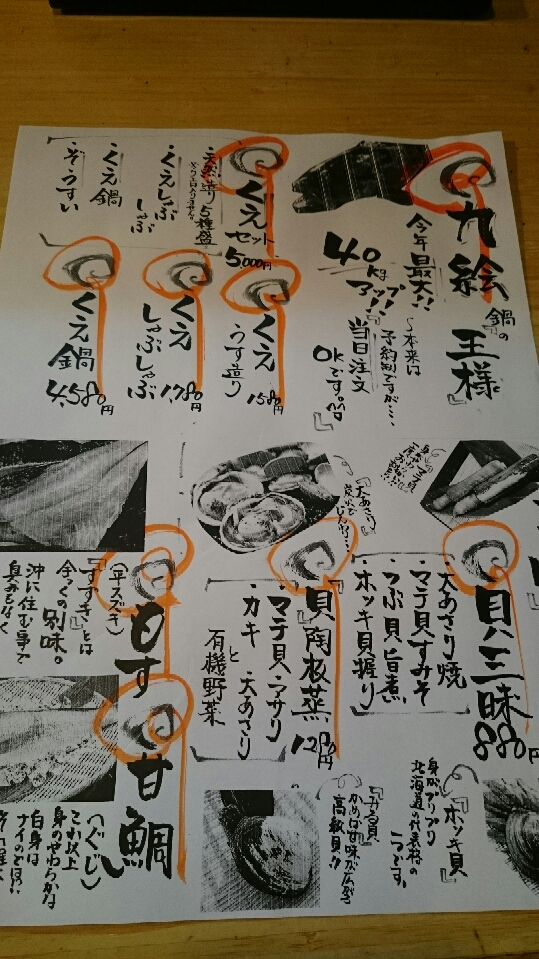 九絵
『鍋の王様』
今年最大!!
40kgアップ!!
〜本来は
予約制ですが…
当日注文
OKです。』
くえセット
5,000円
天然造り5種盛
・くえしゃぶしゃぶ
・くえ鍋
・ぞうすい
くえ
うす造り
1580円
くえ
しゃぶしゃぶ
1,780円
くえ鍋
4,580円
貝三昧
880円
・大あさり焼
・マテ貝すみそ
・つぶ貝旨煮
・ホッキ貝握り
『大あさり』
『貝陶板蒸』
1280円
・マテ貝・アサリ
・カキ・大あさり
と
有機野菜
(平スズキ)
『すずき』とは
全くの別味。
沖に住む事で
甘鯛
(へぐじ)
これ以上
身のやわらかな
白身は
ナイのでは!?
『ホッキ貝』
身がプリプリ
北海道の代表格の
一つです。
かめば甘味が広がる
高級貝!!